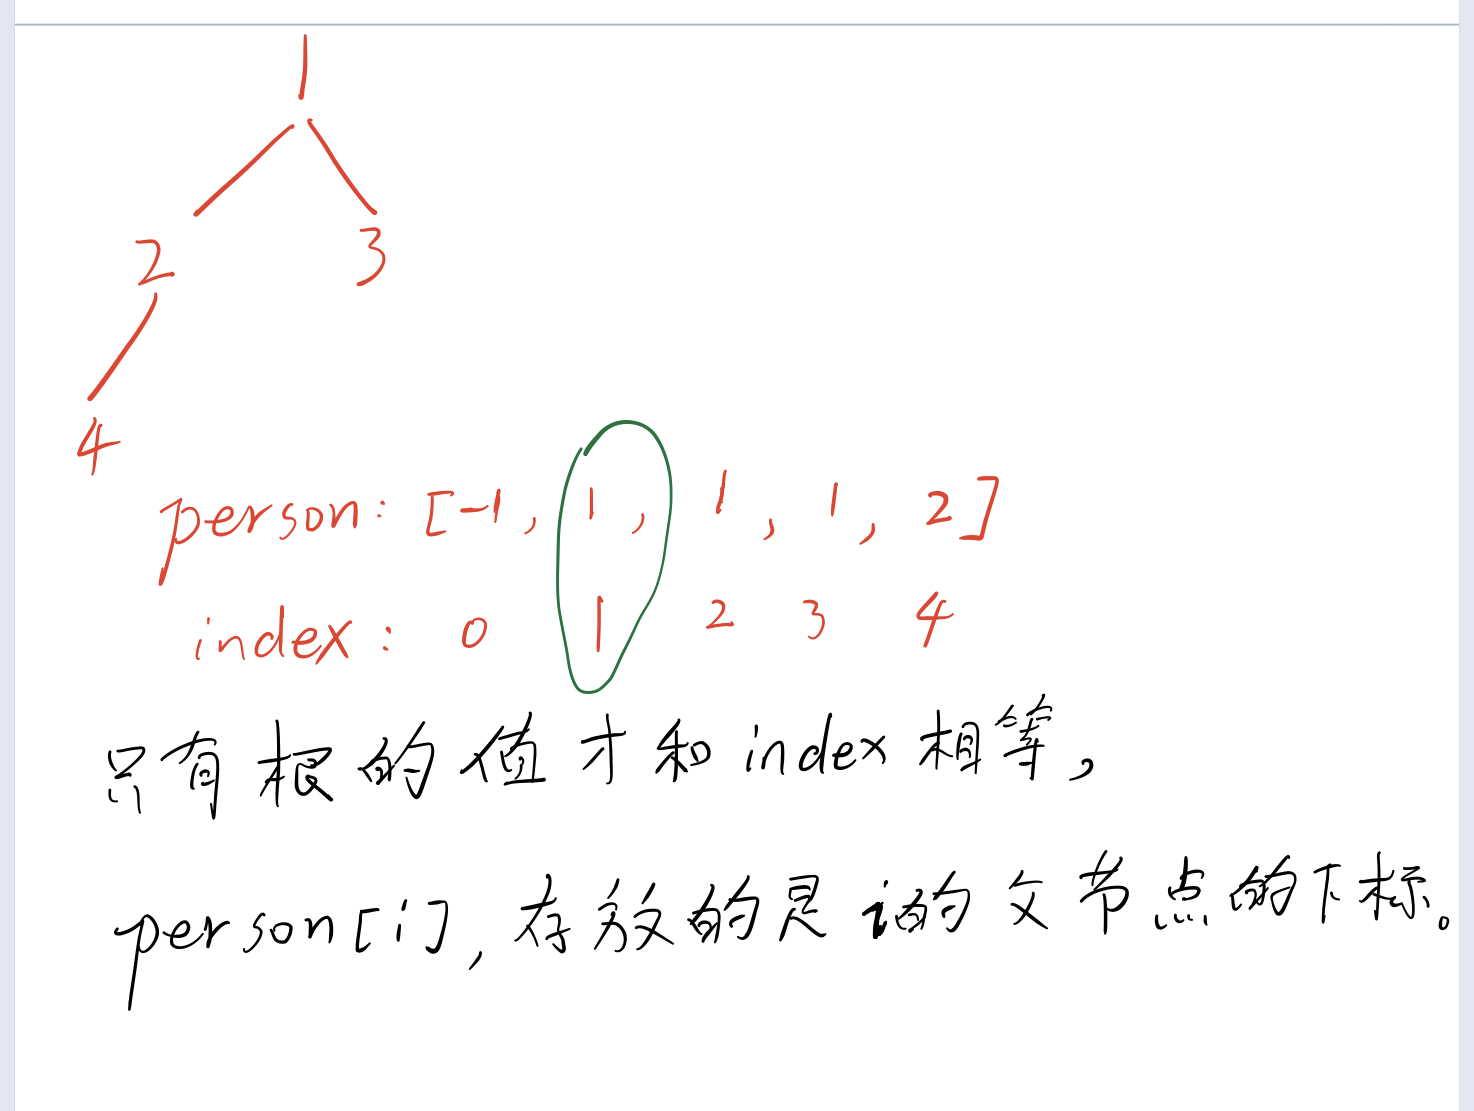 1
2 3
4
person: [-1, 1, 1, 1, 2]
index: 0 1 2 3 4
只有根的值才和index相等,
person[i],存放的是i的父节点的下标。